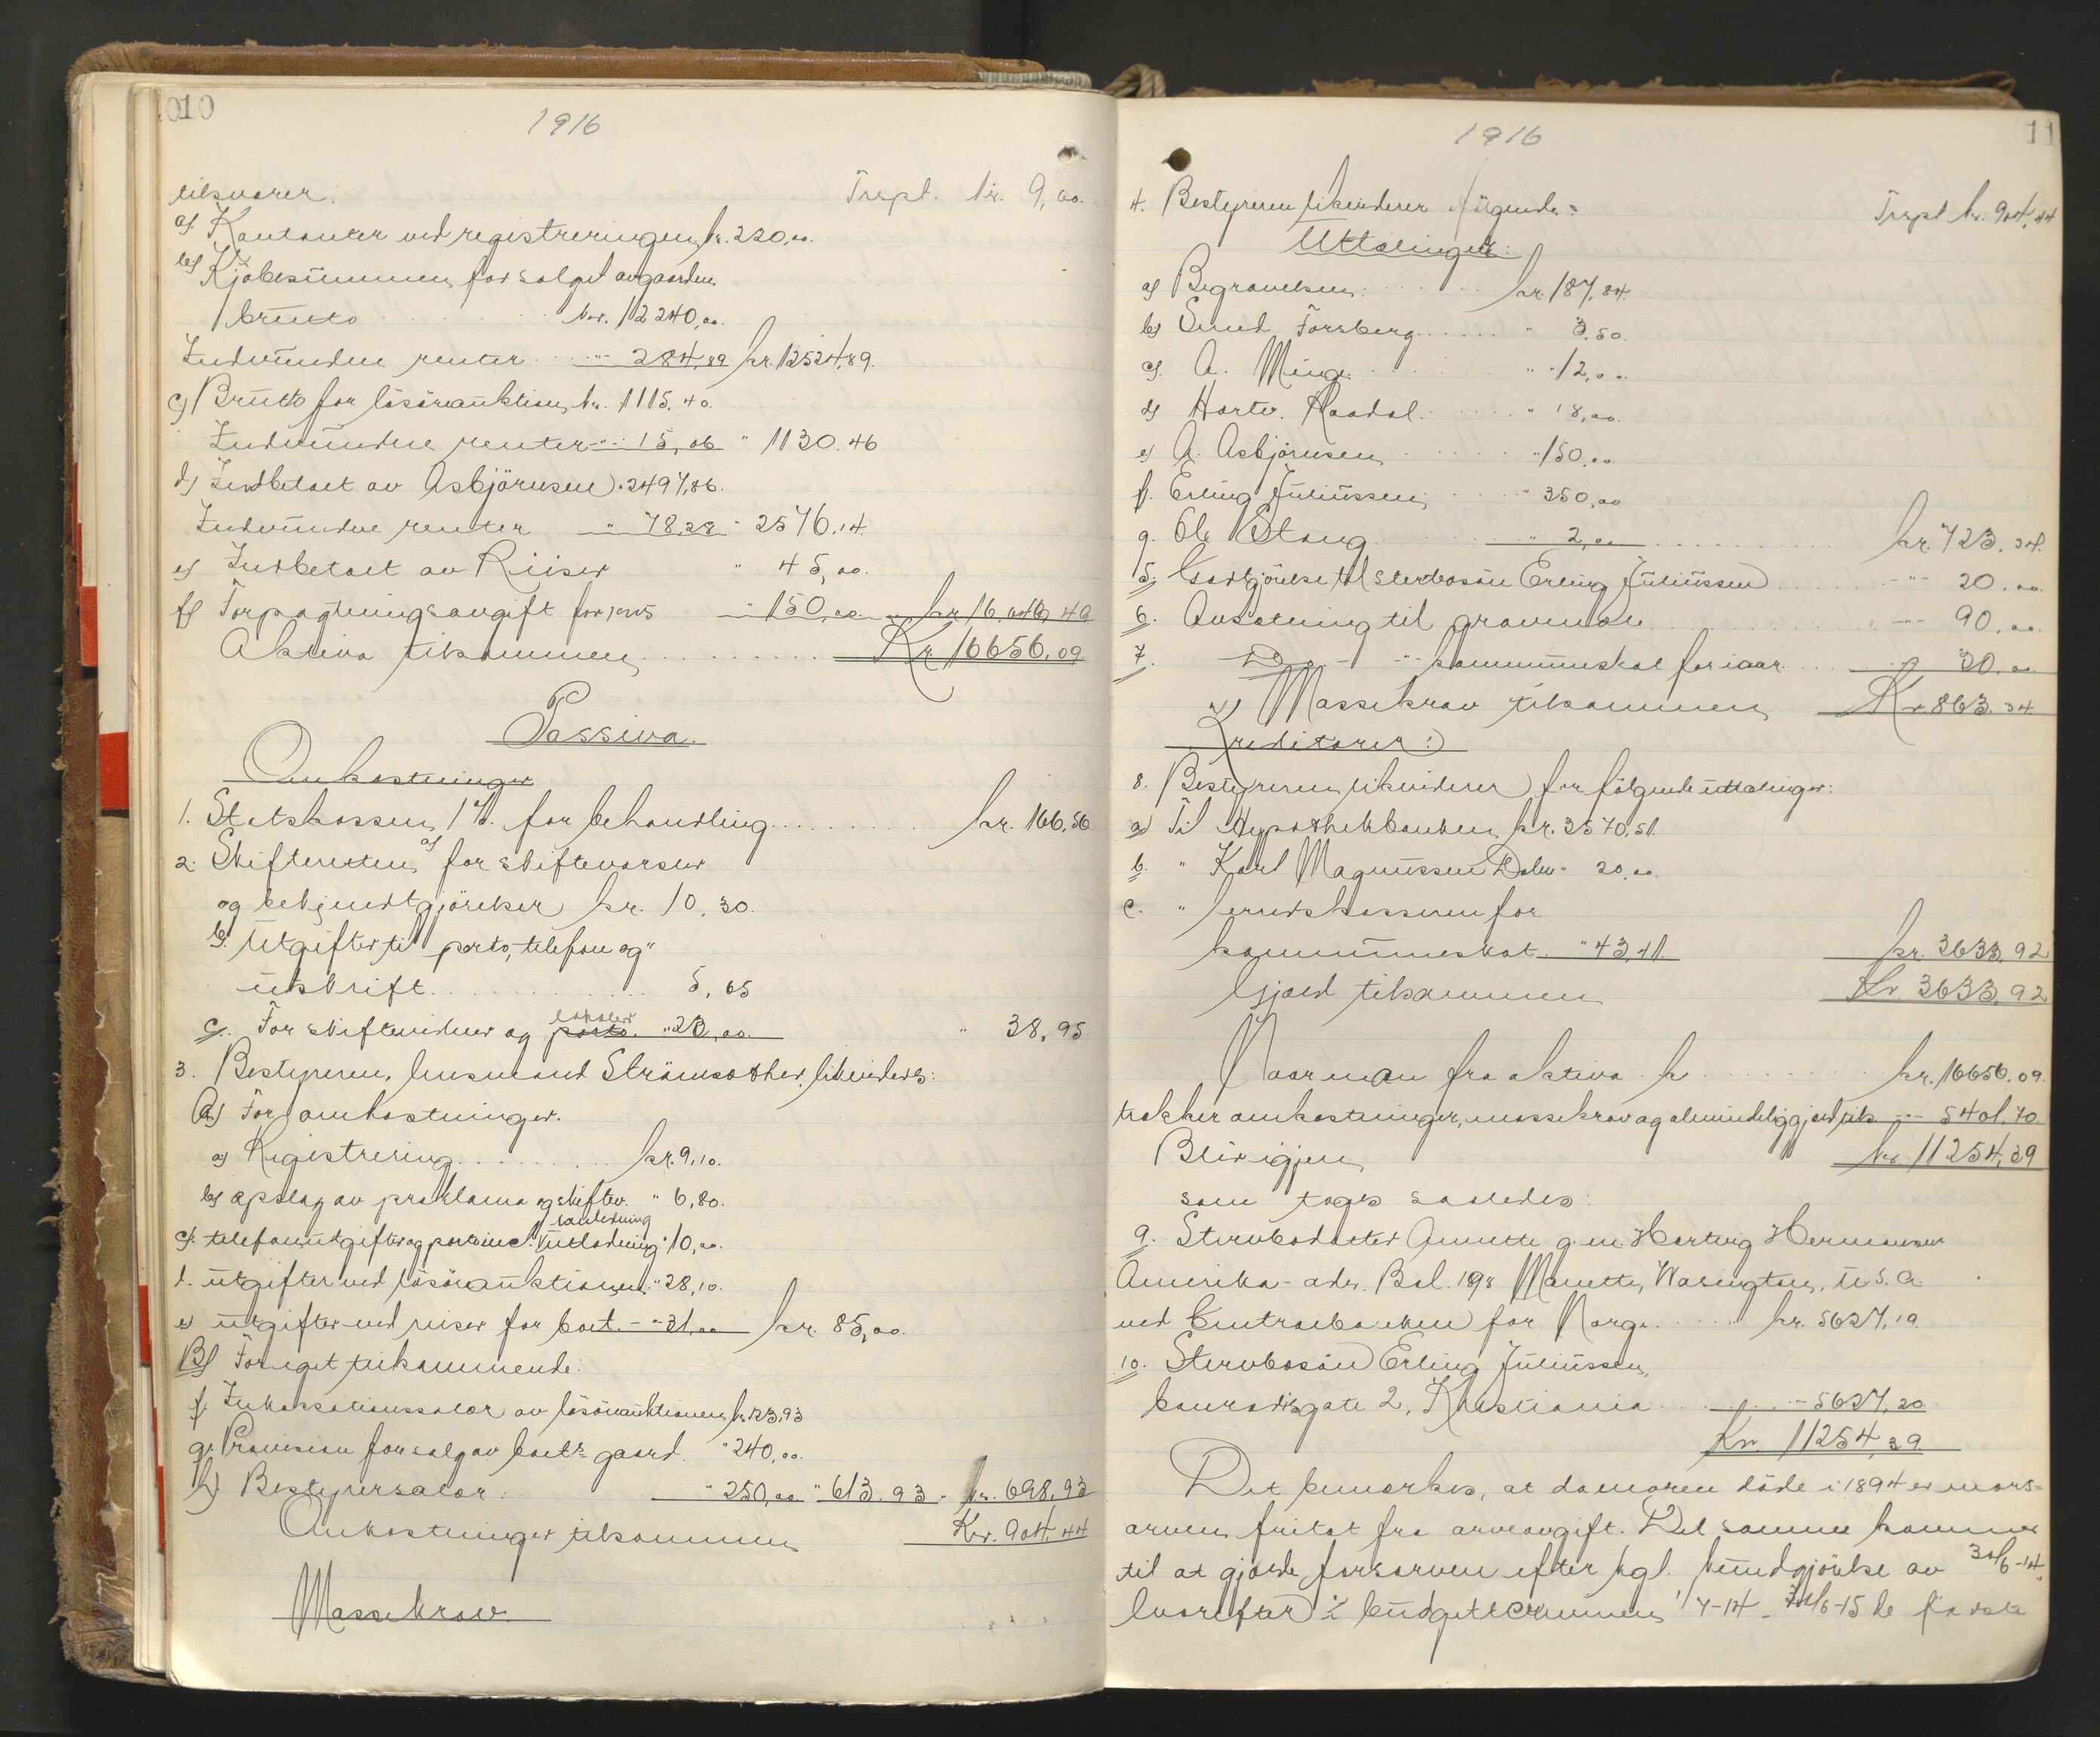 10
1916
tilsvarer. Trspt. kr. 9,00.
a) Kontanter ved registreringen kr. 220,00.
b) Kjøbesummen for solget av gaarden
brutto kr. 12240,00.
Indvundne renter " 284,89 kr. 12524,89.
c) Brutto for løsøreauktion kr. 1115.40.
Indvundne renter " 15,06 " 1130.46
d) Indbetalt av Asbjørnsen " 2497,86.
Indvundne renter " 78.28 " 2576.14.
e) Indbetalt av Riiser " 45,00.
f) Forpagtningsavgift for 1915 " 150,00 kr. 16,646,49
Aktiva tilsammen Kr 16656,09
Passiva.
Omkostninger
1. Statskassen 1% for behandling kr. 166,56
2. Skifteretten a) for skiftevarsler
og bekjendtgjørelser kr. 10,30.
b. Utgifter til porto, telefon og
utskrift 5,65
c. For skiftevidner og porto. lokaler " 23,00. " 38,95
3. Bestyreren, lensmand Strömsæther, likviderer:
A) For omkostninger.
a) Registrering kr. 9,10.
b) opslag av proklama og skiftev. " 6,80.
c). telefonutgifter og porto incl. i anledning utlodning " 10,00.
d. utgifter ved løsøreauktionen " 28,10.
e) utgifter ved reiser for boet - " 31,00 kr. 85,00.
B) For eget tilkommende:
f. Inkassationssalær av løsøreauktionen kr. 123,93
g. Provision for salg av boets gaard " 240,00.
h) Bestyrersalær: " 250,00 " 613.93 " kr. 698,93
Omkostninger tilsammen Kr. 904,44
Massekrav.
11
1916
4. Bestyreren likviderer følgende: Trspt kr. 904,44
Uttællinger:
a) Begravelsen: kr. 187,84.
b) Smed Forsberg " 3,50.
c). A. Minge " 12,00.
d) Hartv. Raadal. " 18,00.
e) A. Asbjørnsen " 150,00
f. Erling Juliussen " 350,00
g. Ole Stang " 2,00 kr. 723.34.
5. Godtgjørelse til stervbosøn Erling Juliussen " 20.00.
6. Avsætning til gravmæle " 90,00.
7. Do - " kommuneskat for iaar " 30,00.
Massekrav tilsammen Kr. 863.34.
Kreditorer:
8. Bestyreren likviderer for følgende uttællinger:
a) Til Hypothekbanken kr. 3570,51.
b. " Karl Magnussen Dalen " 20,00.
c. " herredskasseren for
kommuneskat " 43,41. kr. 3633,92
Gjæld tilsammen Kr 3633,92
Naar man fra aktiva kr. 16656,09.
trækker omkostninger, massekrav og almindelig gjæld tils. " 5401,70
Blir igjen kr. 11254,39
som tages saaledes:
9. Stervbodatter Annette g. m. Hartvig Hermansen
Amerika - adr. Bol. 198 Manette, Wasington, U.S.A.
ved Centralbanken for Norge kr. 5627,19
10. Stervbosøn Erling Juliussen,
Conradisgate 2, Kristiania " 5627,20
Kr. 11254,39
Det bemerkes, at da moren døde i 1894 er mors-
arven fritat fra arveavgift. Det samme kommer
til at gjælde farsarven efter kgl. kundgjørelse av 30/6-14.
hvorefter i budgetterminen 1/7-14 - 30/6-15 de første